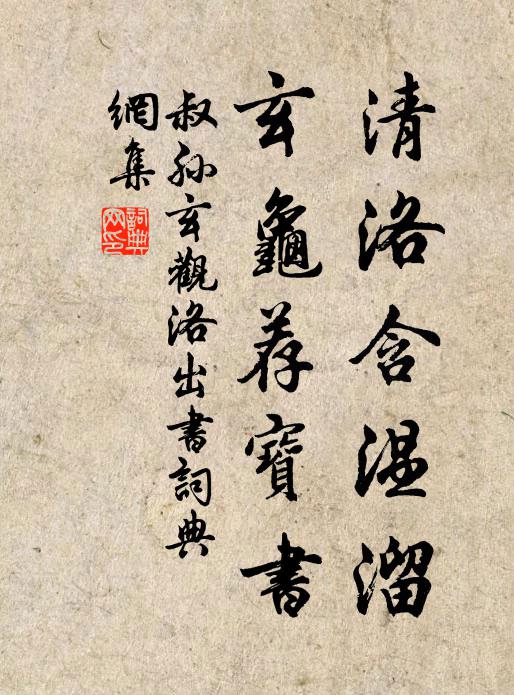 清洛含温溜
玄龜荐寶書
叔孫玄觀洛出書詞典
網集
詞典
网印